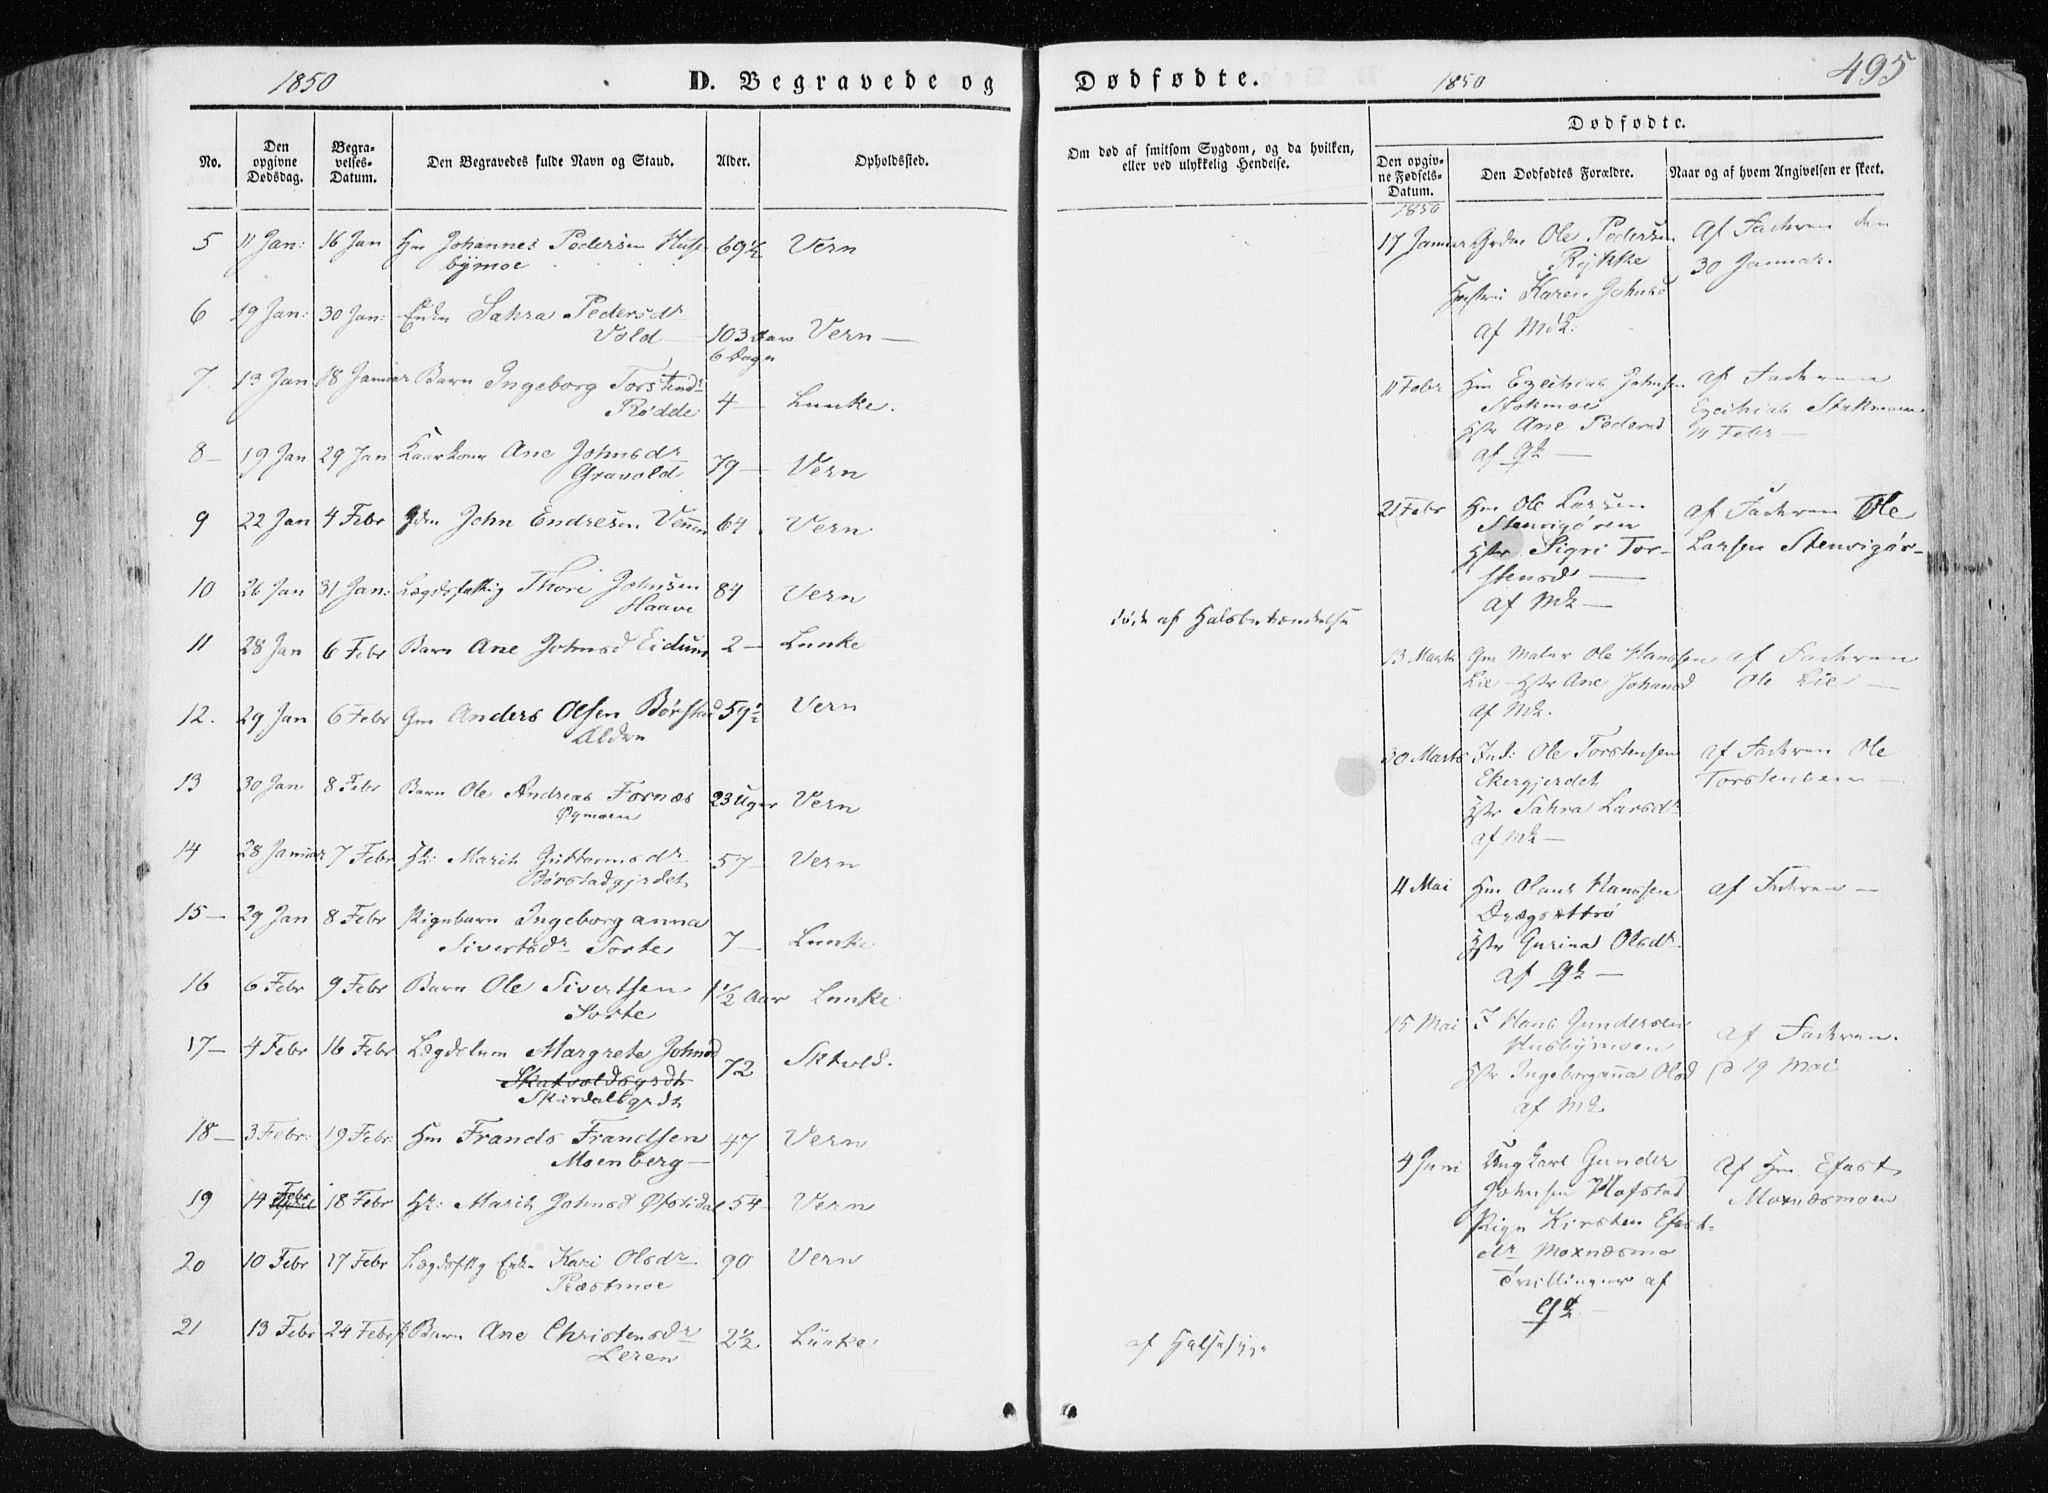 1850
D. Begravede og
Dødfødte.
1850
495
No.
Den opgivne Dødsdag.
Begravelses-Datum.
Den Begravedes fulde Navn og Stand.
Alder.
Opholdssted.
Om død af smitsom Sygdom, og da hvilken,
eller ved ulykkelig Hendelse.
Dødfødte.
Den opgivne Fødsels-Datum.
Den Dødfødtes Forældre.
Naar og af hvem Angivelsen er skeet.
5 11 Jan: 16 Jan Hm Johannes Pedersen Huse 69½ Vern
bymoe
6 19 Jan: 30 Jan: Enke Sahra Pedersdr
Vold — 103 Aar Vern —
6 Dage
7. 13 Jan 18 Januar Barn Ingeborg Torstendr
Rødde 4 — Lunke.
8 — 19 Jan 29 Jan Kaarkone Ane Johnsdr
Gravold 79 — Vern
9 22 Jan 4 Febr Gdm John Endresen 64 Vern
10 26 Jan 31 Jan: Lægdsfattig Thore Johnsen 84 Vern
Haave
11 28 Jan 6 Febr Barn Ane Johnsd Eidum 2 — Lunke
døde af Halsbetændelse
12. 29 Jan 6 Febr Gm Anders Olsen Børstad 59½ Vern
Aldre
13 30 Jan 8 Febr Barn Ole Andreas Fornæs 23 Uger Vern
Øymoen
14 28 Januar 7 Febr Hk: Marith Guttormsdr 57 — Vern
Børstadgjerdet
15 — 29 Jan 8 Febr Pigebarn Ingeborganna
Sivertsdr Forte 7 — Lunke
16 6 Febr 9 Febr Barn Ole Sivertsen 1½ Aar Lunke
Forte
17 — 4 Febr 16 Febr Lægdslem Margrete Johnsd 72 Sktvld.
Skatvoldsgrdt
Skurdalsgrdt
18 — 3 Febr: 19 Febr: Hm Frands Frandsen 47 Vern
Moenberg —
19 14 Febr 18 Febr Hk: Marith Johnsd Øfstidal 54 — Vern
20 10 Febr 17 Febr Lægdsftg Enke Kari Olsdr 90 Vern
Præstmoe
21 13 Febr 24 Febr Barn Ane Christensdr 2½ Lunke.
Leren
af Halssyge
1850
17 Januar Grdm Ole Pedersen Af Faderen den
Rykke 30 Januar.
Hustrue Karen Johnsd
af Mdk:
11 Febr Hm Ezechias Johnsen af Faderen
Stokmoe Ezechias Stokmoen
Hstr Ane Pedersd 14 Febr —
af Qk —
21 Febr Hm Ole Larsen af Faderen Ole
Stenvigøren Larsen Stenvigør-
Hstr Sigri Tor-
stensd —
af Mk —
13 Marts Gm Maler Ole Hanssen af Faderen
Lie — Hstr Ane Johansd Ole Lie —
af Mk.
30 Marts Ind: Ole Torstensen af Faderen Ole
Ekergjerdet Torstensen —
Hstr Sahra Larsdr
af Mk —
4 Mai Hm Olaus Hanssen af Faderen —
Drægsettrø
Hstr Gurina Olsdr.
af Qk —
15 Mai I Hans Gundersen af Faderen.
Husbymoen
Hstr Ingeborganna Olsd d 19 Mai
af Mk
4 Juni Ungkarl Gunder af Hm Efast
Johnsen Hofstad Moxnæsmoen
Pige Kirsten Efast-
dr Moxnæsmo
Tvillinger af
Qk —